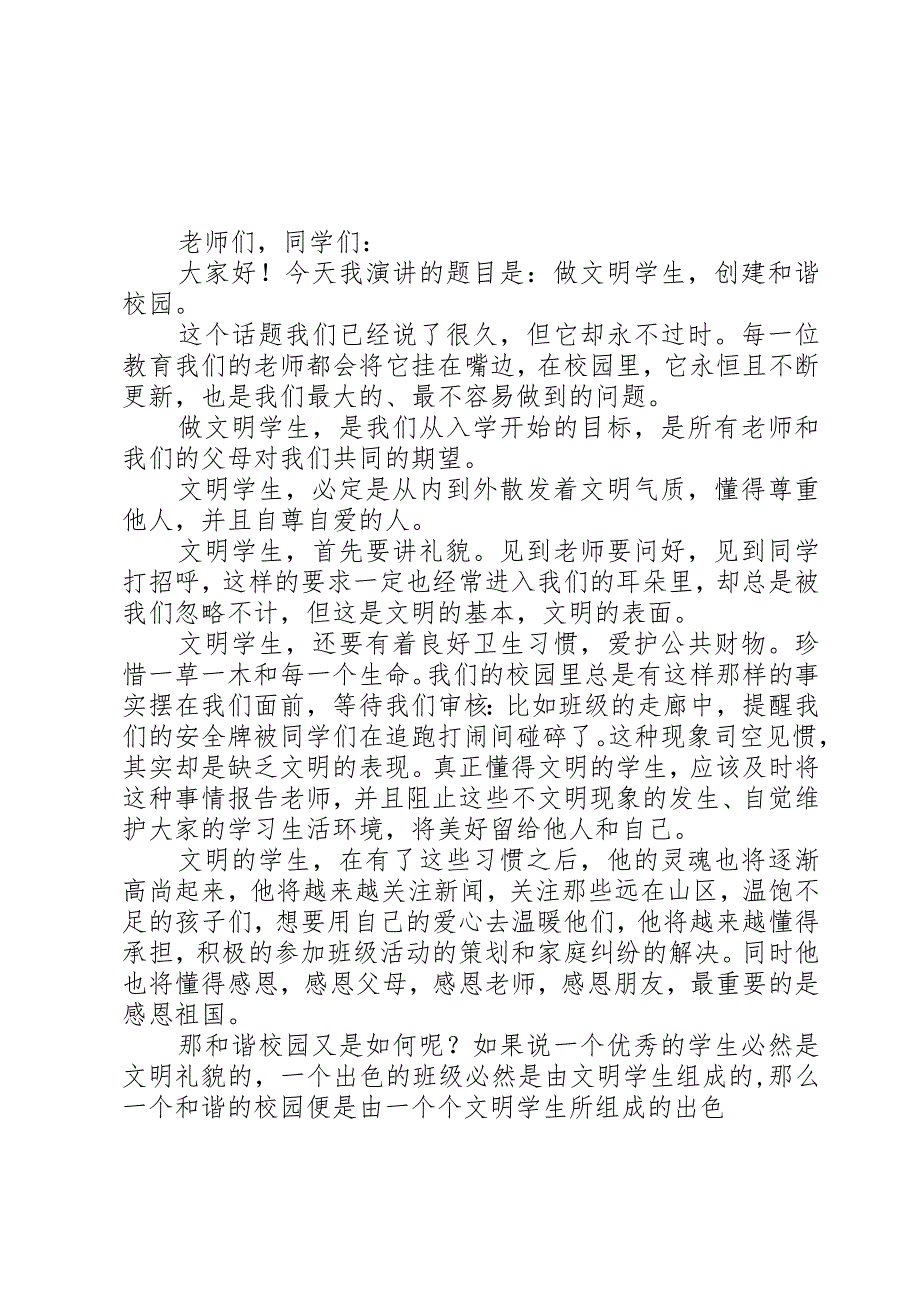 老师们，同学们：
大家好！今天我演讲的题目是：做文明学生，创建和谐
校园。
这个话题我们已经说了很久，但它却永不过时。每一位
教育我们的老师都会将它挂在嘴边，在校园里，它永恒且不断
更新，也是我们最大的、最不容易做到的问题。
做文明学生，是我们从入学开始的目标，是所有老师和
我们的父母对我们共同的期望。
文明学生，必定是从内到外散发着文明气质，懂得尊重
他人，并且自尊自爱的人。
文明学生，首先要讲礼貌。见到老师要问好，见到同学
打招呼，这样的要求一定也经常进入我们的耳朵里，却总是被
我们忽略不计，但这是文明的基本，文明的表面。
文明学生，还要有着良好卫生习惯，爱护公共财物。珍
惜一草一木和每一个生命。我们的校园里总是有这样那样的事
实摆在我们面前，等待我们审核：比如班级的走廊中，提醒我
们的安全牌被同学们在追跑打闹间碰碎了。这种现象司空见惯，
其实却是缺乏文明的表现。真正懂得文明的学生，应该及时将
这种事情报告老师，并且阻止这些不文明现象的发生、自觉维
护大家的学习生活环境，将美好留给他人和自己。
文明的学生，在有了这些习惯之后，他的灵魂也将逐渐
高尚起来，他将越来越关注新闻，关注那些远在山区，温饱不
足的孩子们，想要用自己的爱心去温暖他们，他将越来越懂得
承担，积极的参加班级活动的策划和家庭纠纷的解决。同时他
也将懂得感恩，感恩父母，感恩老师，感恩朋友，最重要的是
感恩祖国。
那和谐校园又是如何呢？如果说一个优秀的学生必然是
文明礼貌的，一个出色的班级必然是由文明学生组成的,那么
一个和谐的校园便是由一个个文明学生所组成的出色